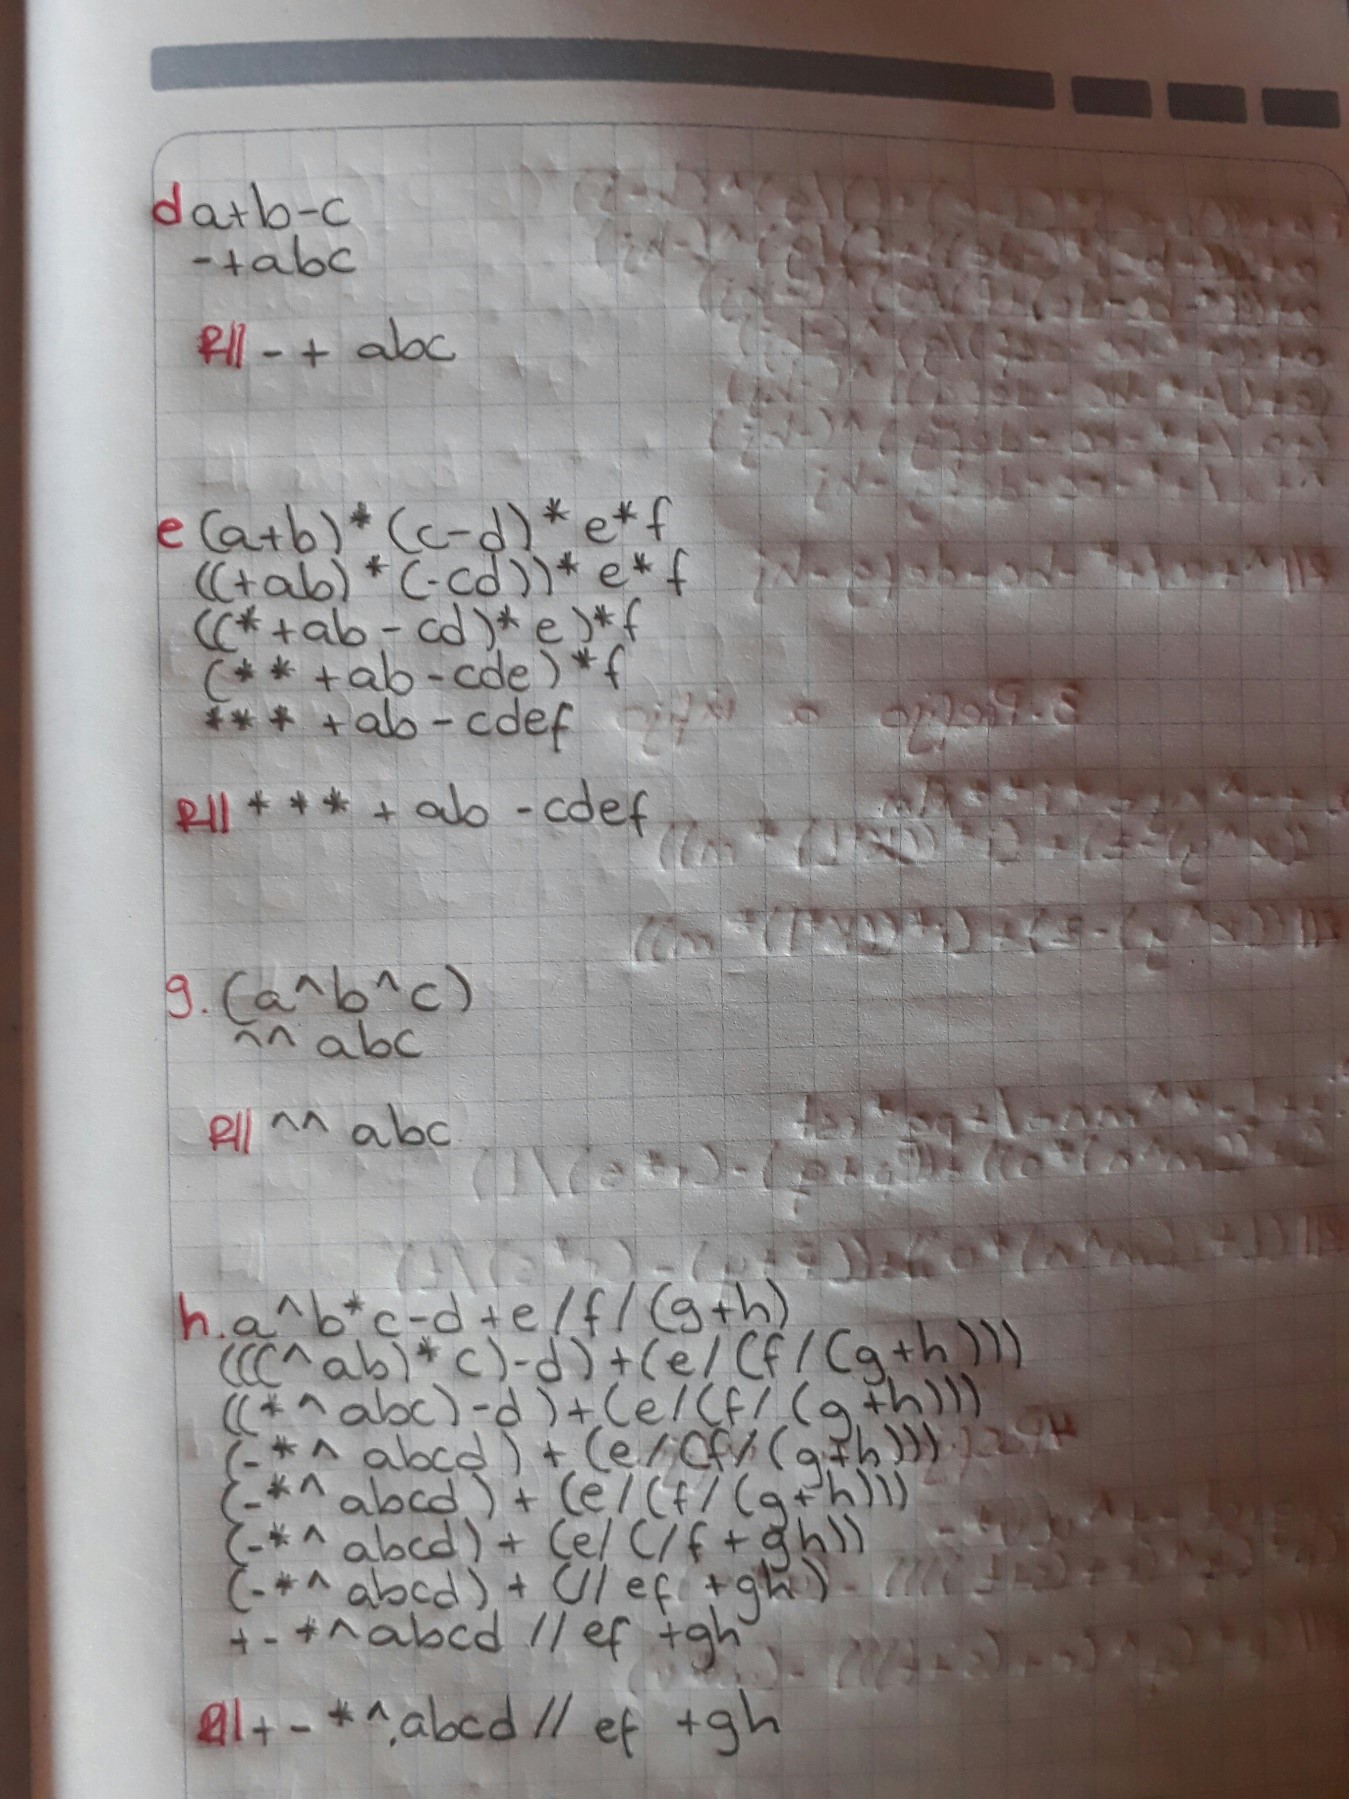 d a+b-c
-+abc
R// -+ abc
e (a+b)*(c-d)*e*f
((+ab)*(-cd))*e*f
((*+ab-cd)*e)*f
(**+ab-cde)*f
***+ab-cdef
R// ***+ab-cdef
g. (a^b^c)
^^abc
R// ^^abc
h. a^b*c-d+e/f/(g+h)
(((^ab)*c)-d)+(e/(f/(g+h)))
((*^abc)-d)+(e/(f/(g+h)))
(-*^abcd)+(e/(f/(g+h)))
(-*^abcd)+(e/(f/(g+h)))
(-*^abcd)+(e/(/f+gh))
(-*^abcd)+(//ef+gh)
+-*^abcd//ef+gh
R// +-*^abcd//ef+gh